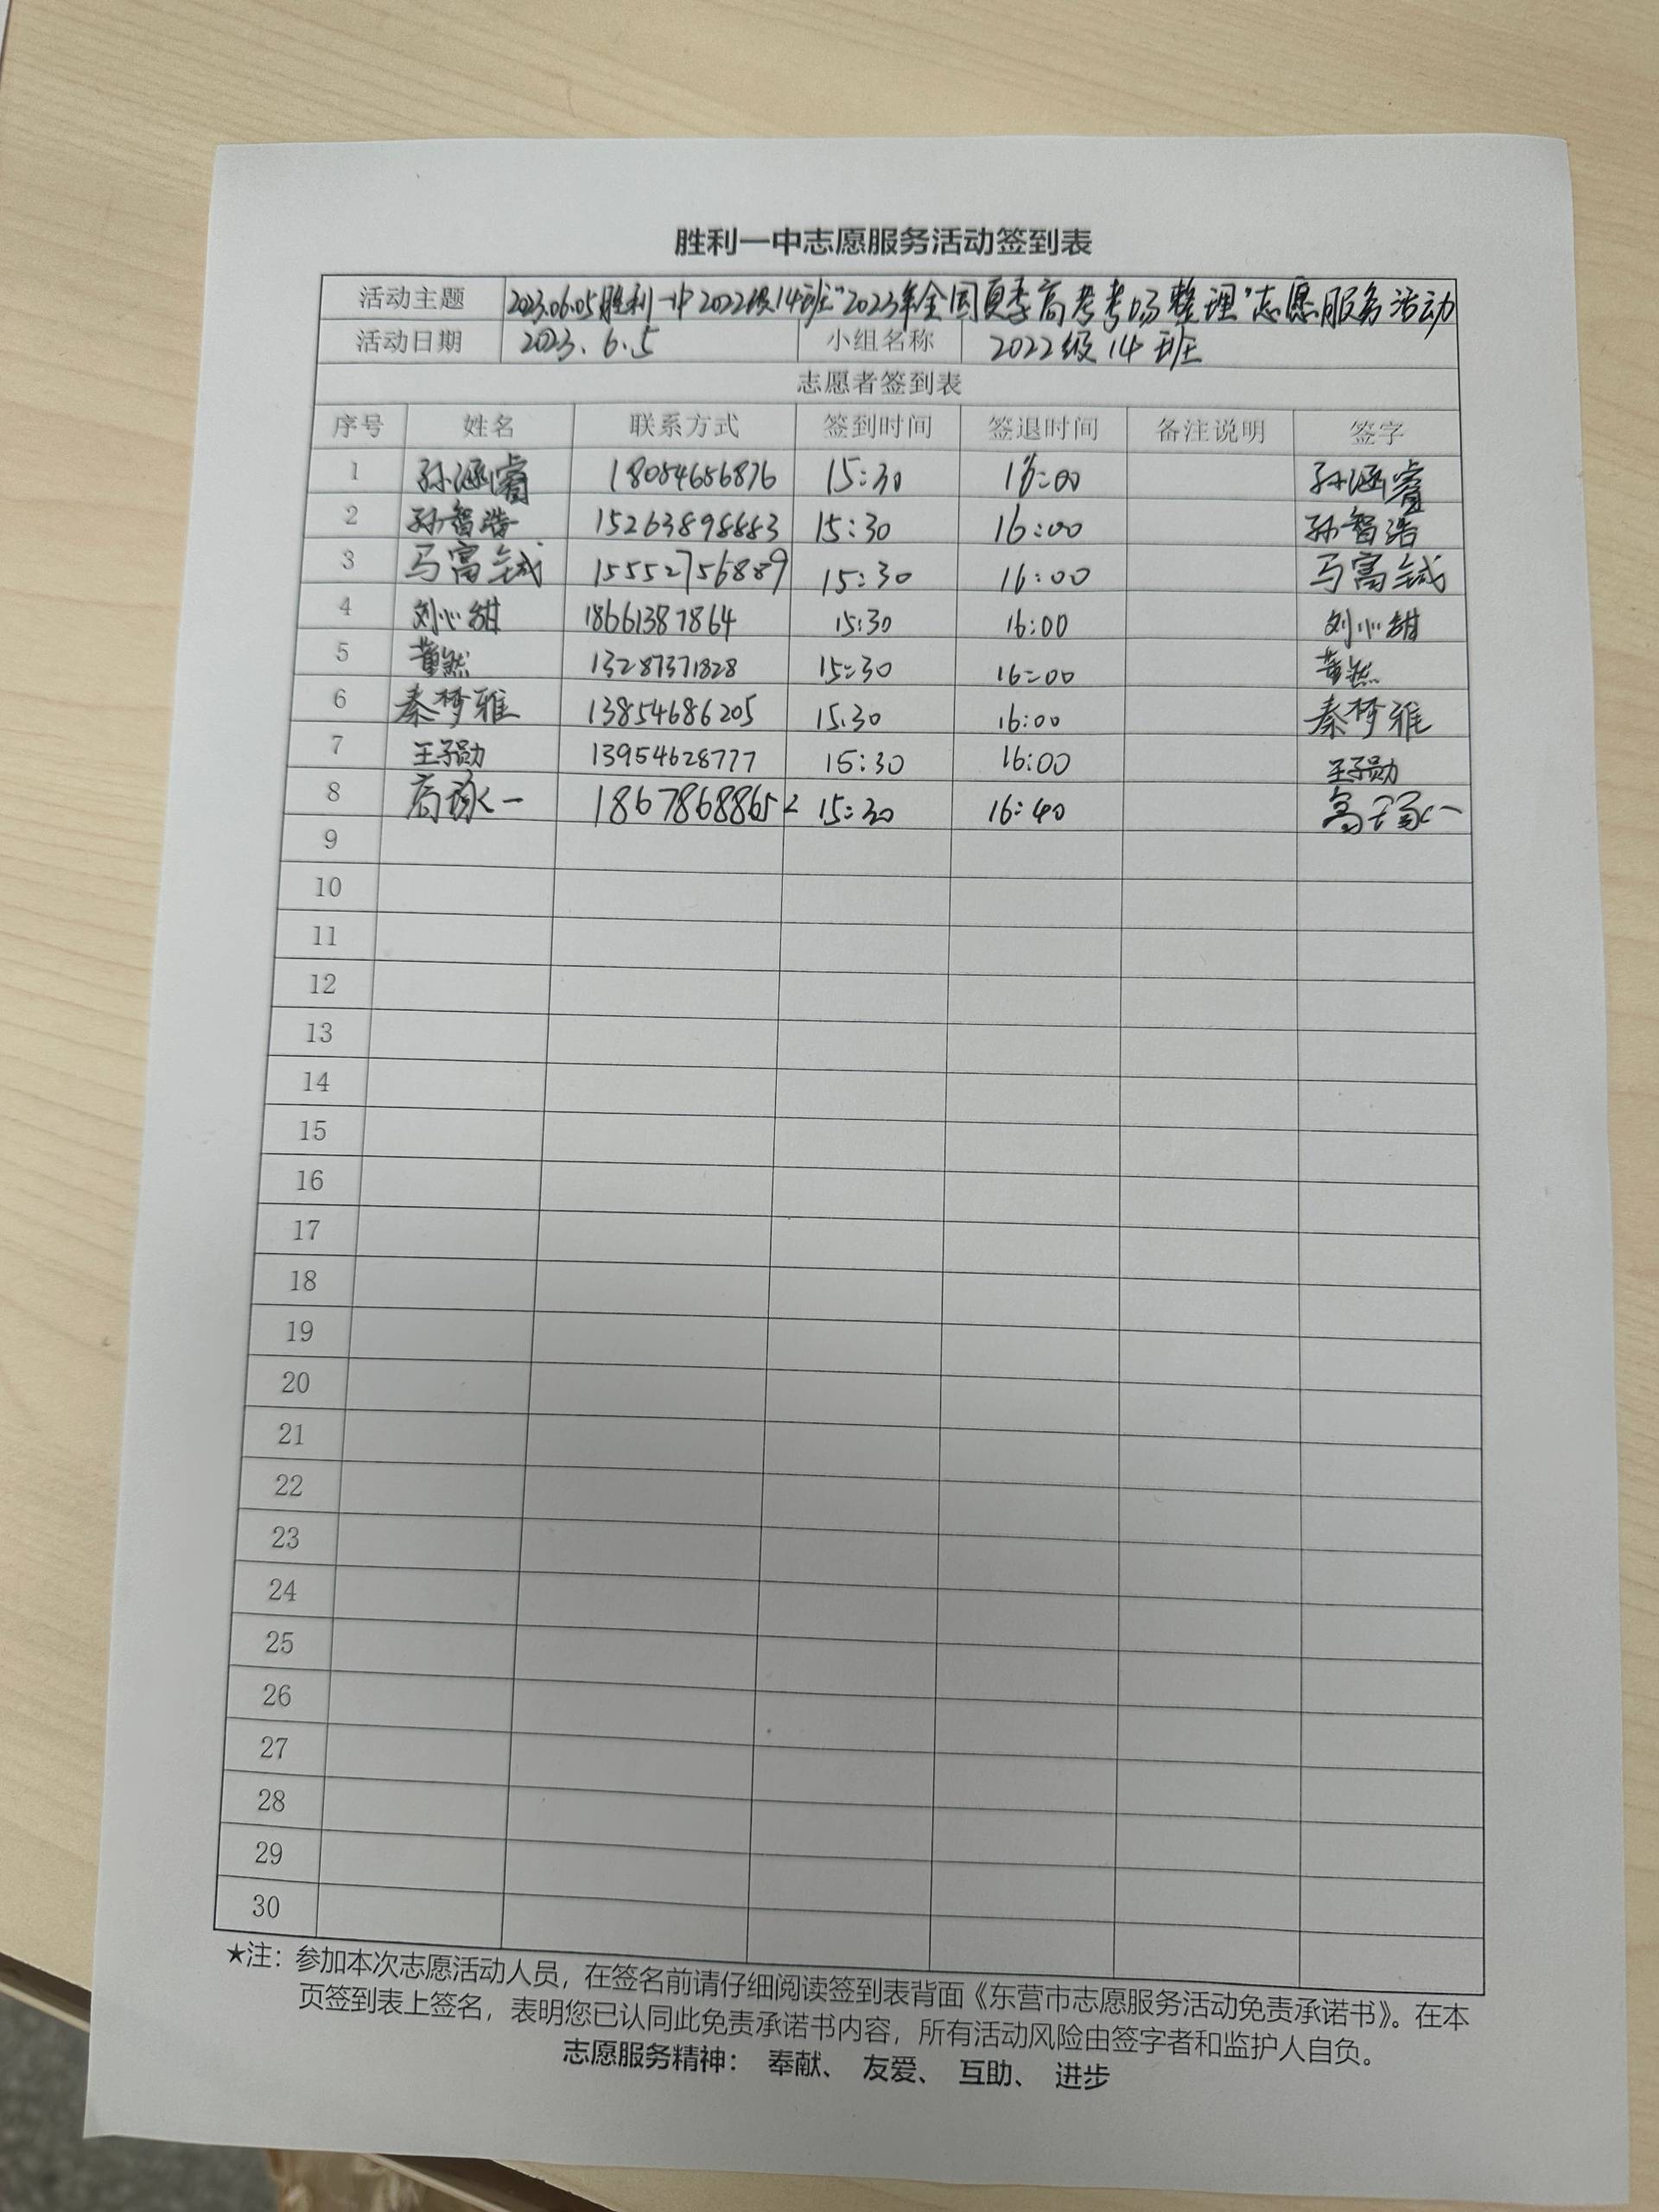 胜利一中志愿服务活动签到表
活动主题 2023.06.05胜利一中2022级14班"2023年全国夏季高考考场整理"志愿服务活动
活动日期 2023.6.5 小组名称 2022级14班
志愿者签到表
序号 姓名 联系方式 签到时间 签退时间 备注说明 签字
1 孙涵睿 18054656876 15:30 16:00 孙涵睿
2 孙智浩 15263898883 15:30 16:00 孙智浩
3 马富铖 15552756889 15:30 16:00 马富铖
4 刘心甜 18661387864 15:30 16:00 刘心甜
5 董然 13287371828 15:30 16:00 董然
6 秦梦雅 13854686205 15:30 16:00 秦梦雅
7 王子勋 13954628777 15:30 16:00 王子勋
8 18678688652 15:30 16:40
9
10
11
12
13
14
15
16
17
18
19
20
21
22
23
24
25
26
27
28
29
30
★注：参加本次志愿活动人员，在签名前请仔细阅读签到表背面《东营市志愿服务活动免责承诺书》。在本
页签到表上签名，表明您已认同此免责承诺书内容，所有活动风险由签字者和监护人自负。
志愿服务精神： 奉献、 友爱、 互助、 进步